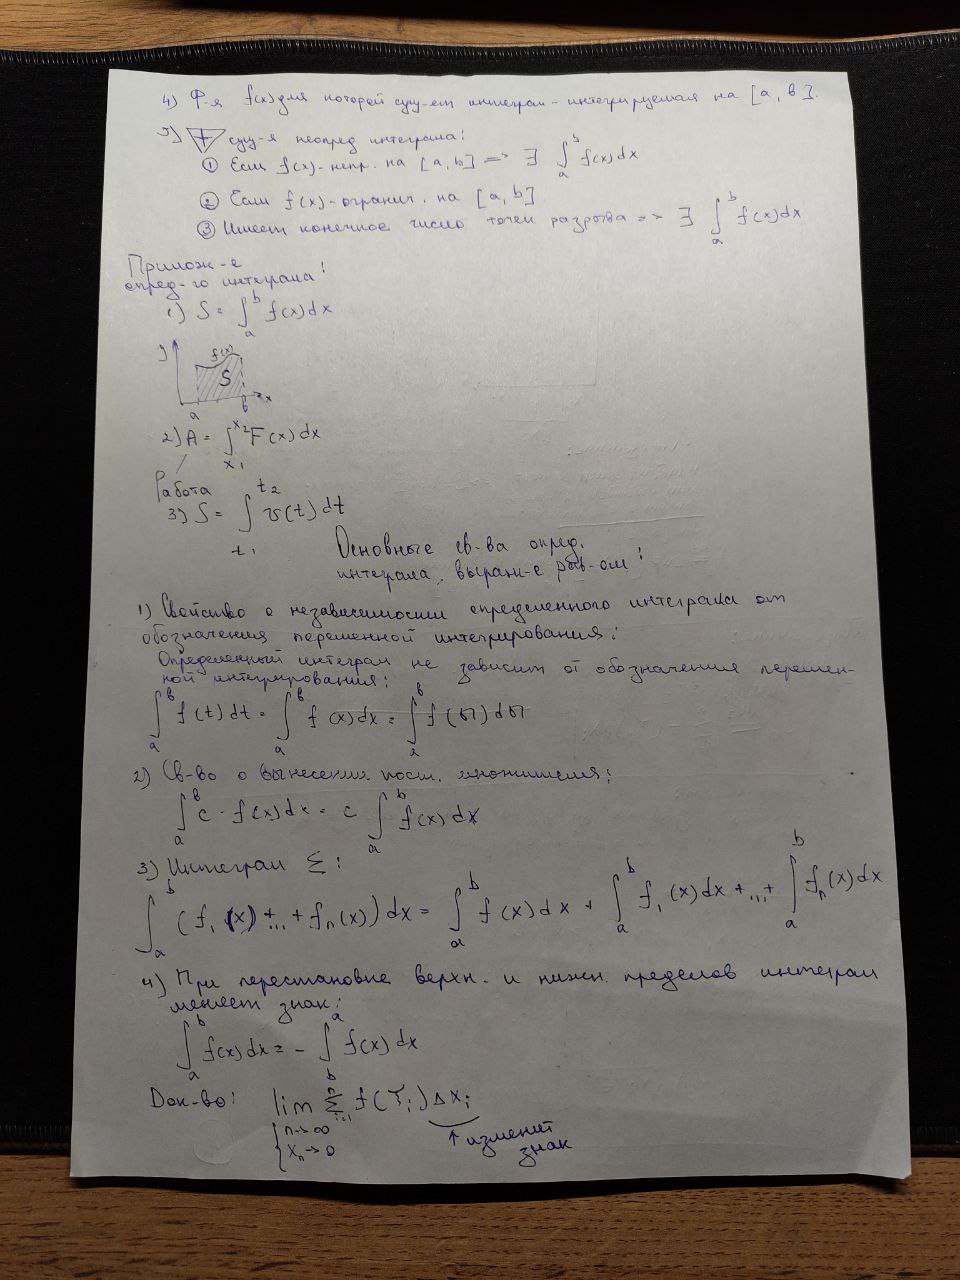 4) Ф-я f(x) для которой сущ-ет интеграл - интегрируемая на [a, b].
5) T сущ-я неопред интеграла:
① Если f(x)- непр. на [a, b] => ∃ ∫ₐᵇ f(x)dx
② Если f(x)-огранич. на [a, b]
③ Имеет конечное число точек разрыва => ∃ ∫ₐᵇ f(x)dx
Прилож-е
опред-го интеграла:
1) S = ∫ₐᵇ f(x)dx
y f(x)
S
a b x
2) A = ∫_{x₁}^{x₂} F(x)dx
Работа
3) S = ∫_{t₁}^{t₂} v(t)dt
Основные св-ва опред.
интеграла, выраж-е рав-ом:
1) Свойство о независимости определенного интеграла от
обозначения переменной интегрирования:
Определенный интеграл не зависит от обозначения перемен-
ной интегрирования:
∫ₐᵇ f(t)dt = ∫ₐᵇ f(x)dx = ∫ₐᵇ f(Ы)dЫ
2) Св-во о вынесении пост. множителя:
∫ₐᵇ c · f(x)dx = c ∫ₐᵇ f(x)dx
3) Интеграл Σ:
∫ₐᵇ (f₁(x)+...+fₙ(x))dx = ∫ₐᵇ f(x)dx + ∫ₐᵇ f₁(x)dx+...+ ∫ₐᵇ fₙ(x)dx
4) При перестановке верхн. и нижн. пределов интеграл
меняет знак:
∫ₐᵇ f(x)dx = - ∫_b^a f(x)dx
Док-во: lim Σ_{i=1}^{n} f(ξᵢ) Δxᵢ
{ n→∞
xₙ→0
↑ изменит
знак